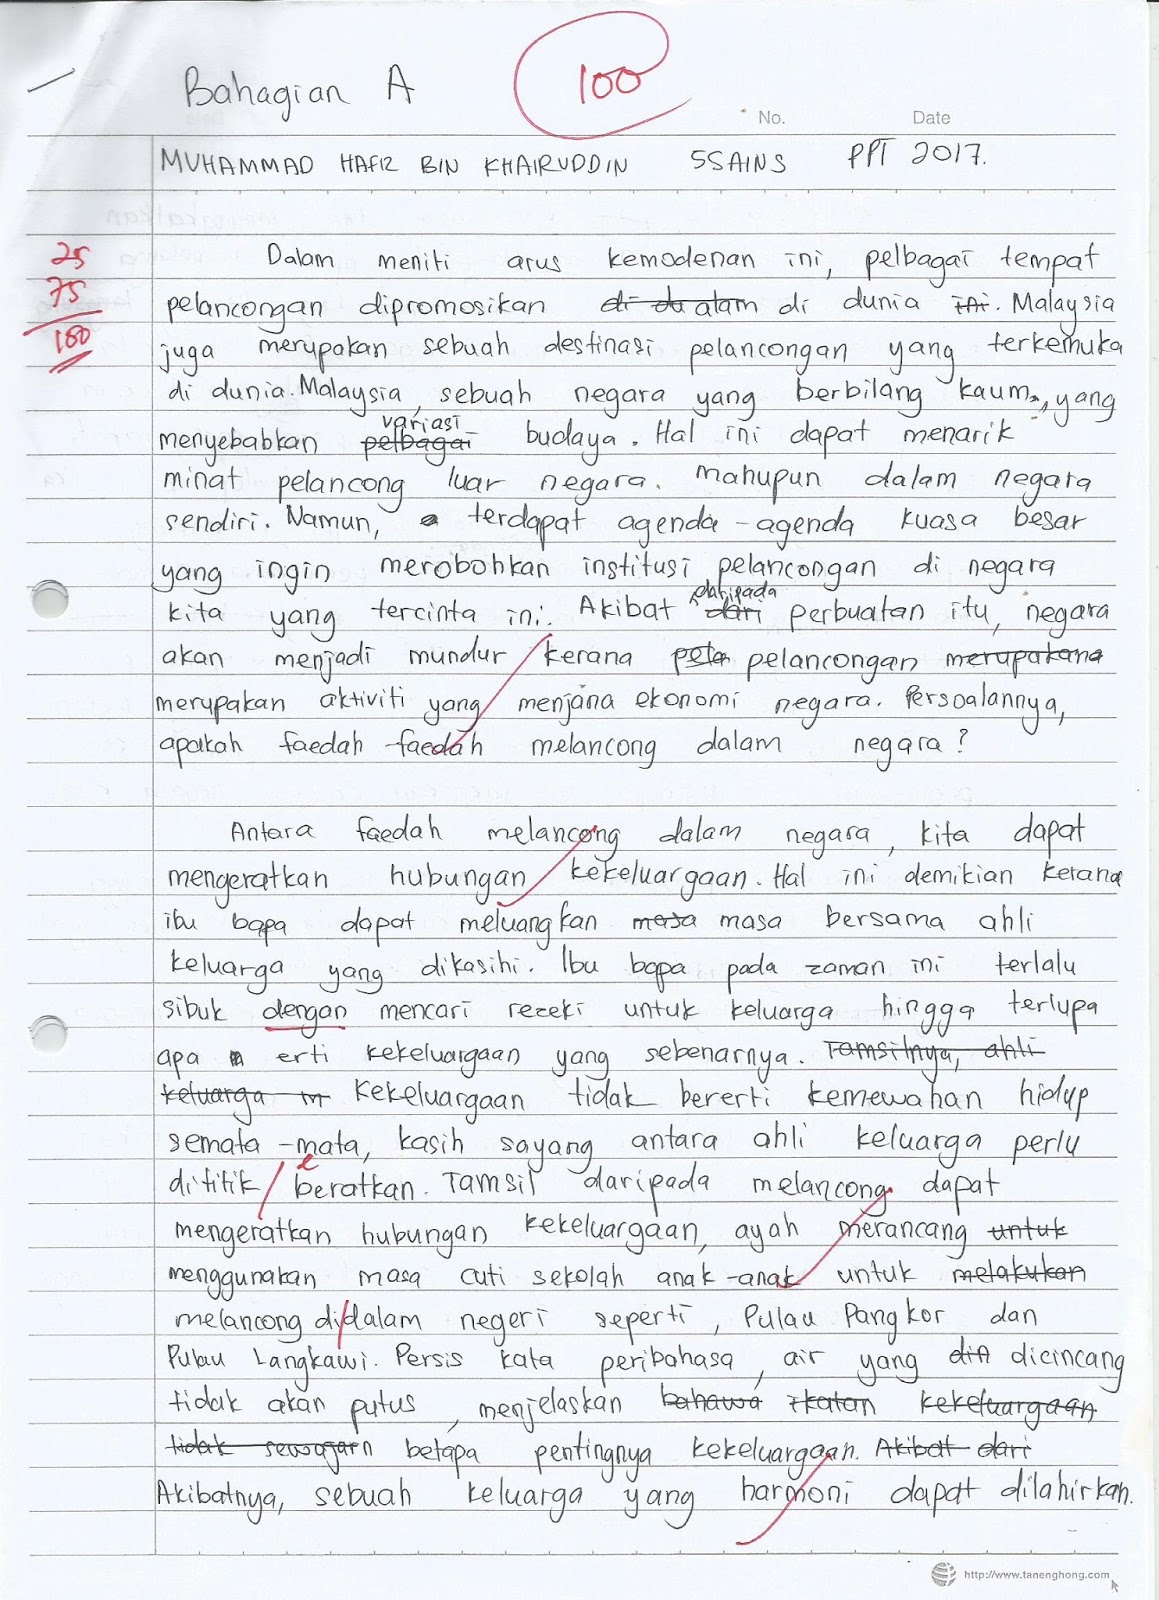 Bahagian A
100
No. Date
MUHAMMAD HAFIZ BIN KHAIRUDDIN 5SAINS PPT 2017.
25
75
100
Dalam meniti arus kemodenan ini, pelbagai tempat
pelancongan dipromosikan di dualam di dunia ini. Malaysia
juga merupakan sebuah destinasi pelancongan yang terkemuka
di dunia. Malaysia, sebuah negara yang berbilang kaum, yang
variasi
menyebabkan pelbagai budaya. Hal ini dapat menarik
minat pelancong luar negara. mahupun dalam negara
sendiri. Namun, terdapat agenda-agenda kuasa besar
yang ingin merobohkan institusi pelancongan di negara
daripada
kita yang tercinta ini. Akibat dari perbuatan itu, negara
akan menjadi mundur kerana pela pelancongan merupakana
merupakan aktiviti yang menjana ekonomi negara. Persoalannya,
apakah faedah-faedah melancong dalam negara?
Antara faedah melancong dalam negara, kita dapat
mengeratkan hubungan kekeluargaan. Hal ini demikian kerana
ibu bapa dapat meluangkan masa masa bersama ahli
keluarga yang dikasihi. Ibu bapa pada zaman ini terlalu
sibuk dengan mencari rezeki untuk keluarga hingga terlupa
apa erti kekeluargaan yang sebenarnya. Tamsilnya, ahli
keluarga m kekeluargaan tidak bererti kemewahan hidup
semata-mata, kasih sayang antara ahli keluarga perlu
e
dititik beratkan. Tamsil daripada melancong dapat
mengeratkan hubungan kekeluargaan, ayah merancang untuk
menggunakan masa cuti sekolah anak-anak untuk melakukan
melancong didalam negeri seperti, Pulau Pangkor dan
Pulau Langkawi. Persis kata peribahasa, air yang din dicincang
tidak akan putus, menjelaskan bahawa ikatan kekeluargaan
tidak sewajarn betapa pentingnya kekeluargaan. Akibat dari
Akibatnya, sebuah keluarga yang harmoni dapat dilahirkan.
http://www.tanenghong.com